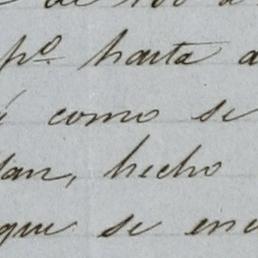 de 100 a
pº. hasta a
í como se
lan, hecho
que se en